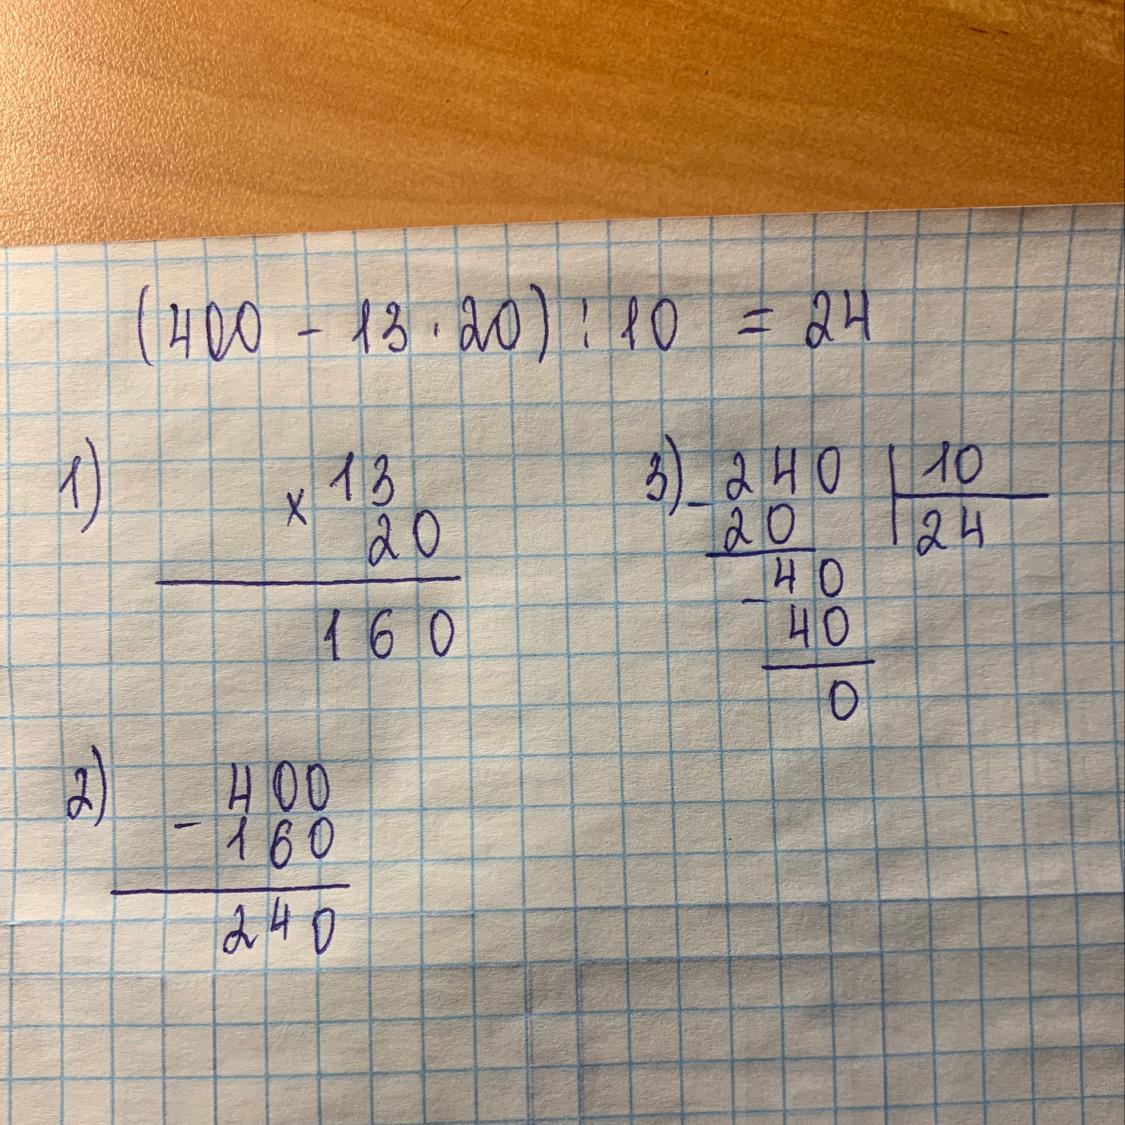 (400 - 13 · 20) : 10 = 24
1)
× 13
20
160
2)
- 400
160
240
3)
- 240 | 10
20 | 24
- 40
40
0